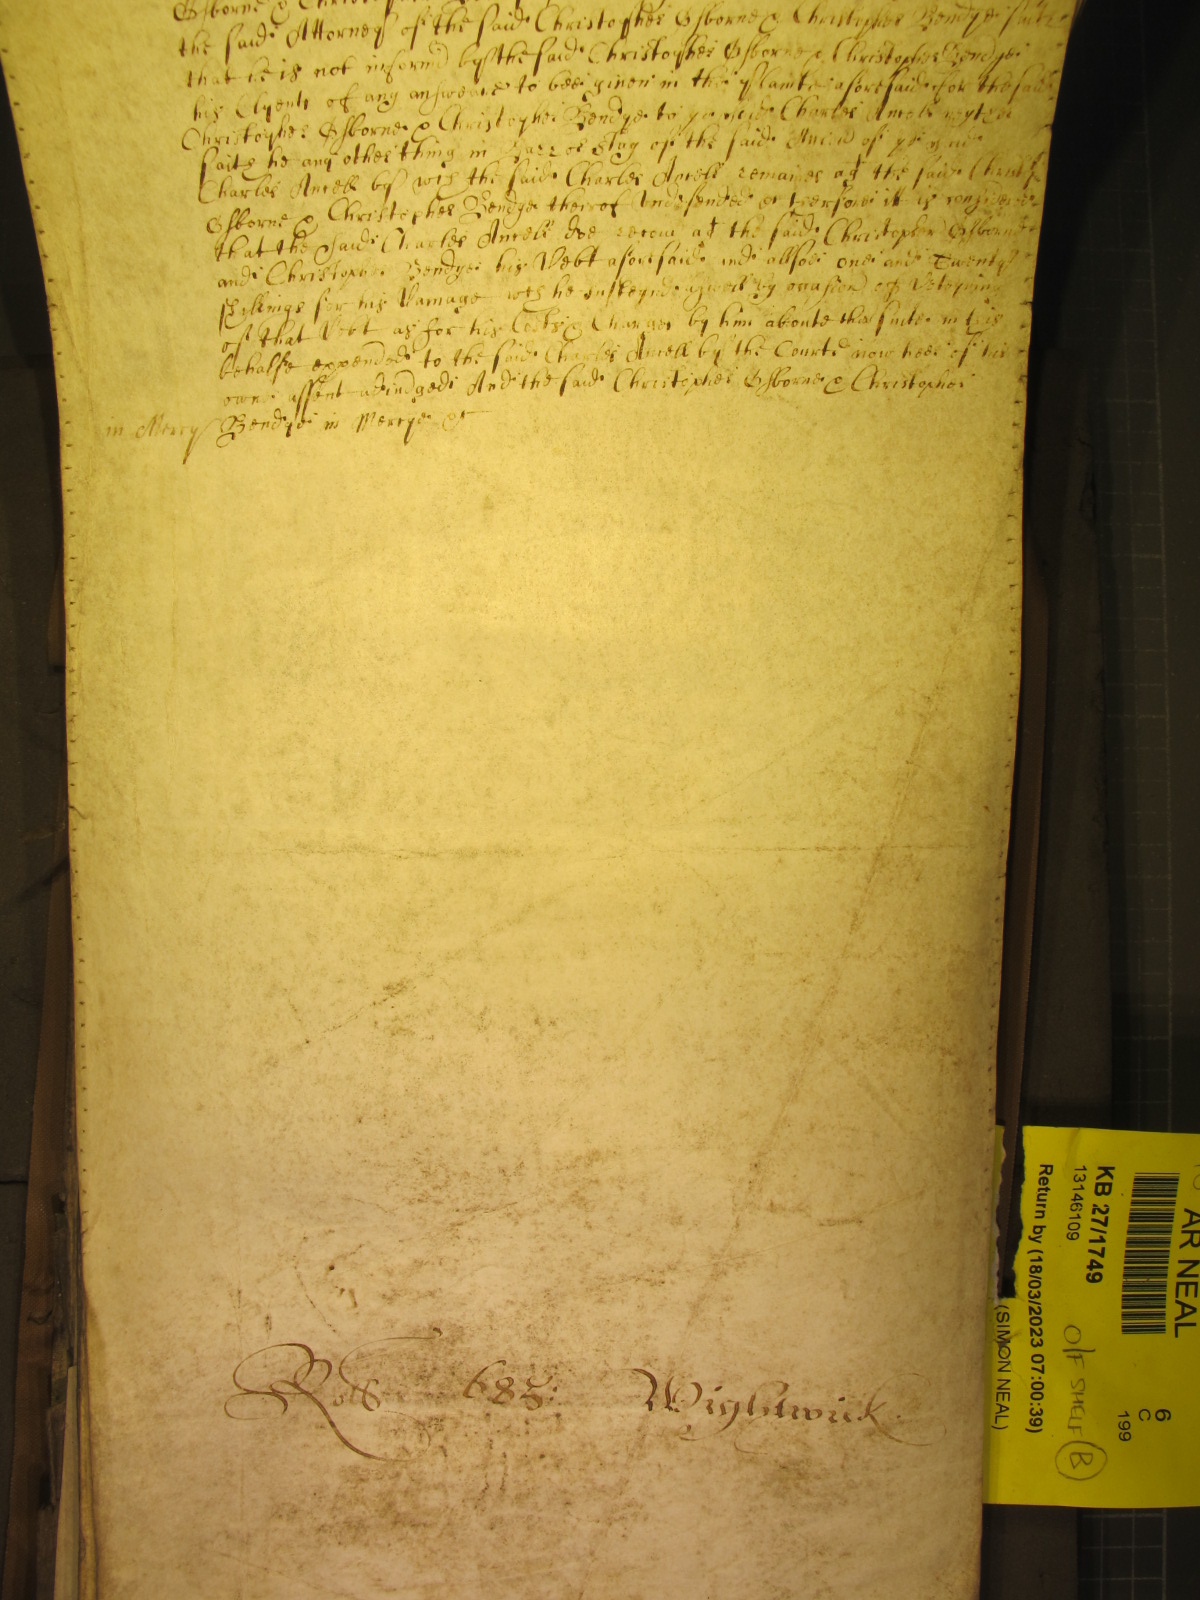 Osborne & Christopher
the said Attorney of the said Christopher Osborne & Christopher Bendge saith
that he is not informd by the said Christopher Osborne & Christopher Bendge
his Clyents of any answeare to bee given in the plainte aforesaid for the said
Christopher Osborne & Christopher Bendge to the said Charles Amell neyther
saith he any other thing in Barr or stay of the said Accon of
Charles Amell by wch the said Charles Amell remaines agt the said Christ
Osborne & Christopher Bendge thereof undefended &c therefore it is considered
that the said Charles Amell doe recover agt the said Christopher Osborne
and Christopher Bendge his Debt aforesaid and allsoe one and Twenty
shillings for his Damage wch he susteynd aswell by occasion of Deteyning
of that Debt as for his Costs & Charges by him aboute this suite in this
behalfe expended to the said Charles Amell by the Courte now heere of his
owne assent adiudged And the said Christopher Osborne & Christopher
in Mercy Bendge in Mercye &c
Rots 688: Wightwick
AR NEAL
KB 27/1749
13146109
Return by (18/03/2023 07:00:39)
(SIMON NEAL)
6
C
199
O/F SHELF B